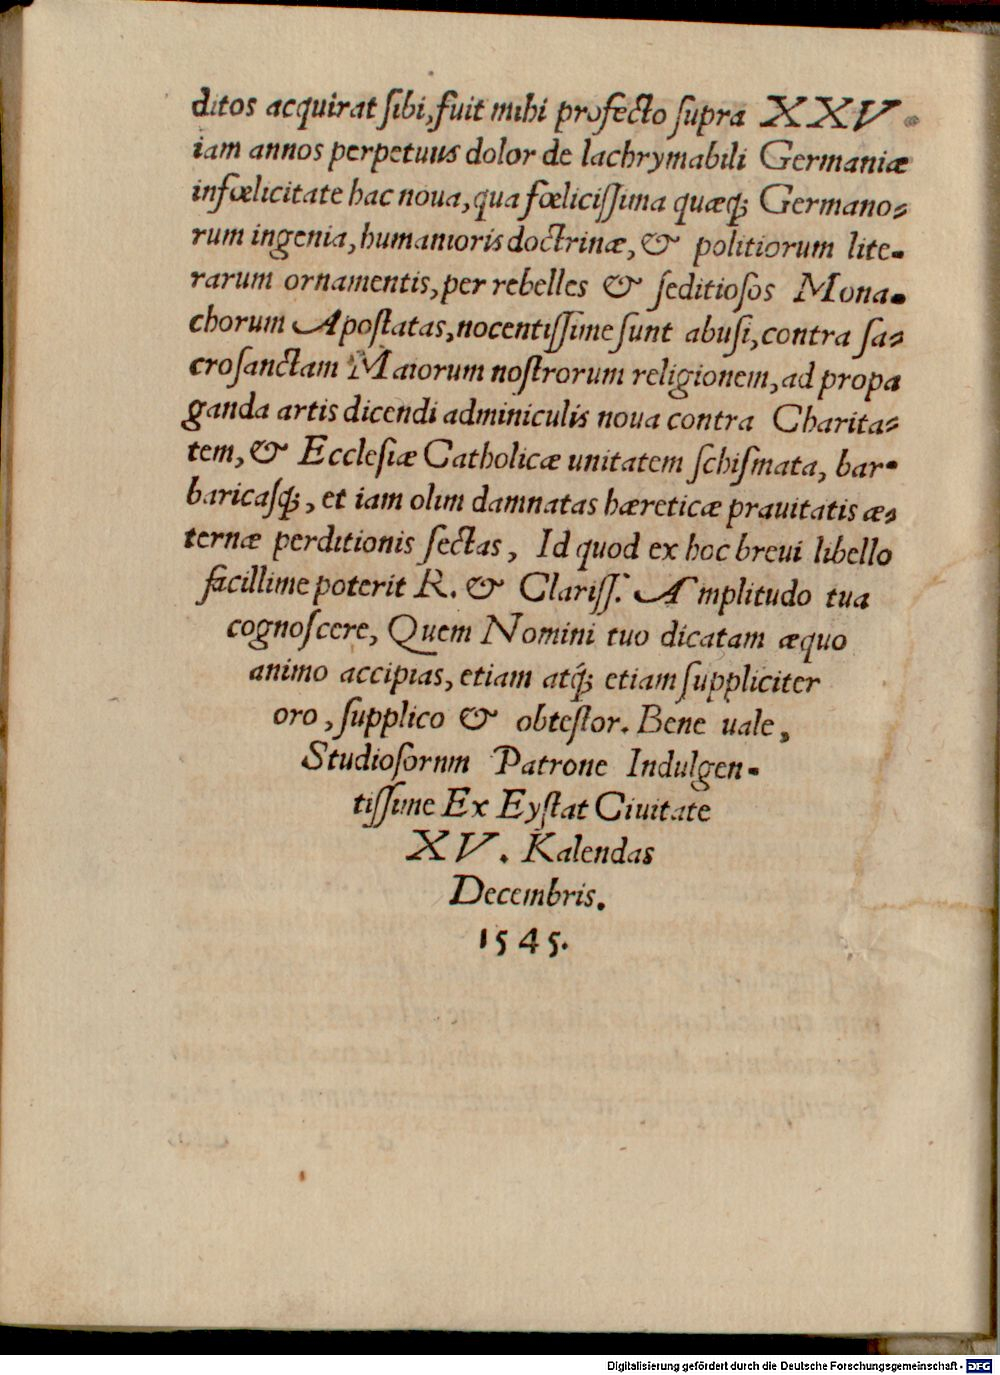 ditos acquirat ſibi, fuit mihi profecto ſupra XXV
iam annos perpetuus dolor de lachrymabili Germaniæ
infœlicitate hac noua, qua fœliciſſima quæq; Germano-
rum ingenia, humanioris doctrinæ, & politiorum lite-
rarum ornamentis, per rebelles & ſeditioſos Mona-
chorum Apoſtatas, nocentiſſime ſunt abuſi, contra ſa-
croſanctam Maiorum noſtrorum religionem, ad propa
ganda artis dicendi adminiculis noua contra Charita-
tem, & Eccleſiæ Catholicæ unitatem ſchiſmata, bar-
baricaſq;, et iam olim damnatas hæreticæ prauitatis æ-
ternæ perditionis ſectas, Id quod ex hoc breui libello
facillime poterit R. & Clariſſ. Amplitudo tua
cognoſcere, Quem Nomini tuo dicatam æquo
animo accipias, etiam atq́; etiam ſuppliciter
oro, ſupplico & obteſtor. Bene uale,
Studioſorum Patrone Indulgen-
tiſſime Ex Eyſtat Ciuitate
XV. Kalendas
Decembris.
1545.
Digitalisierung gefördert durch die Deutsche Forschungsgemeinschaft - DFG